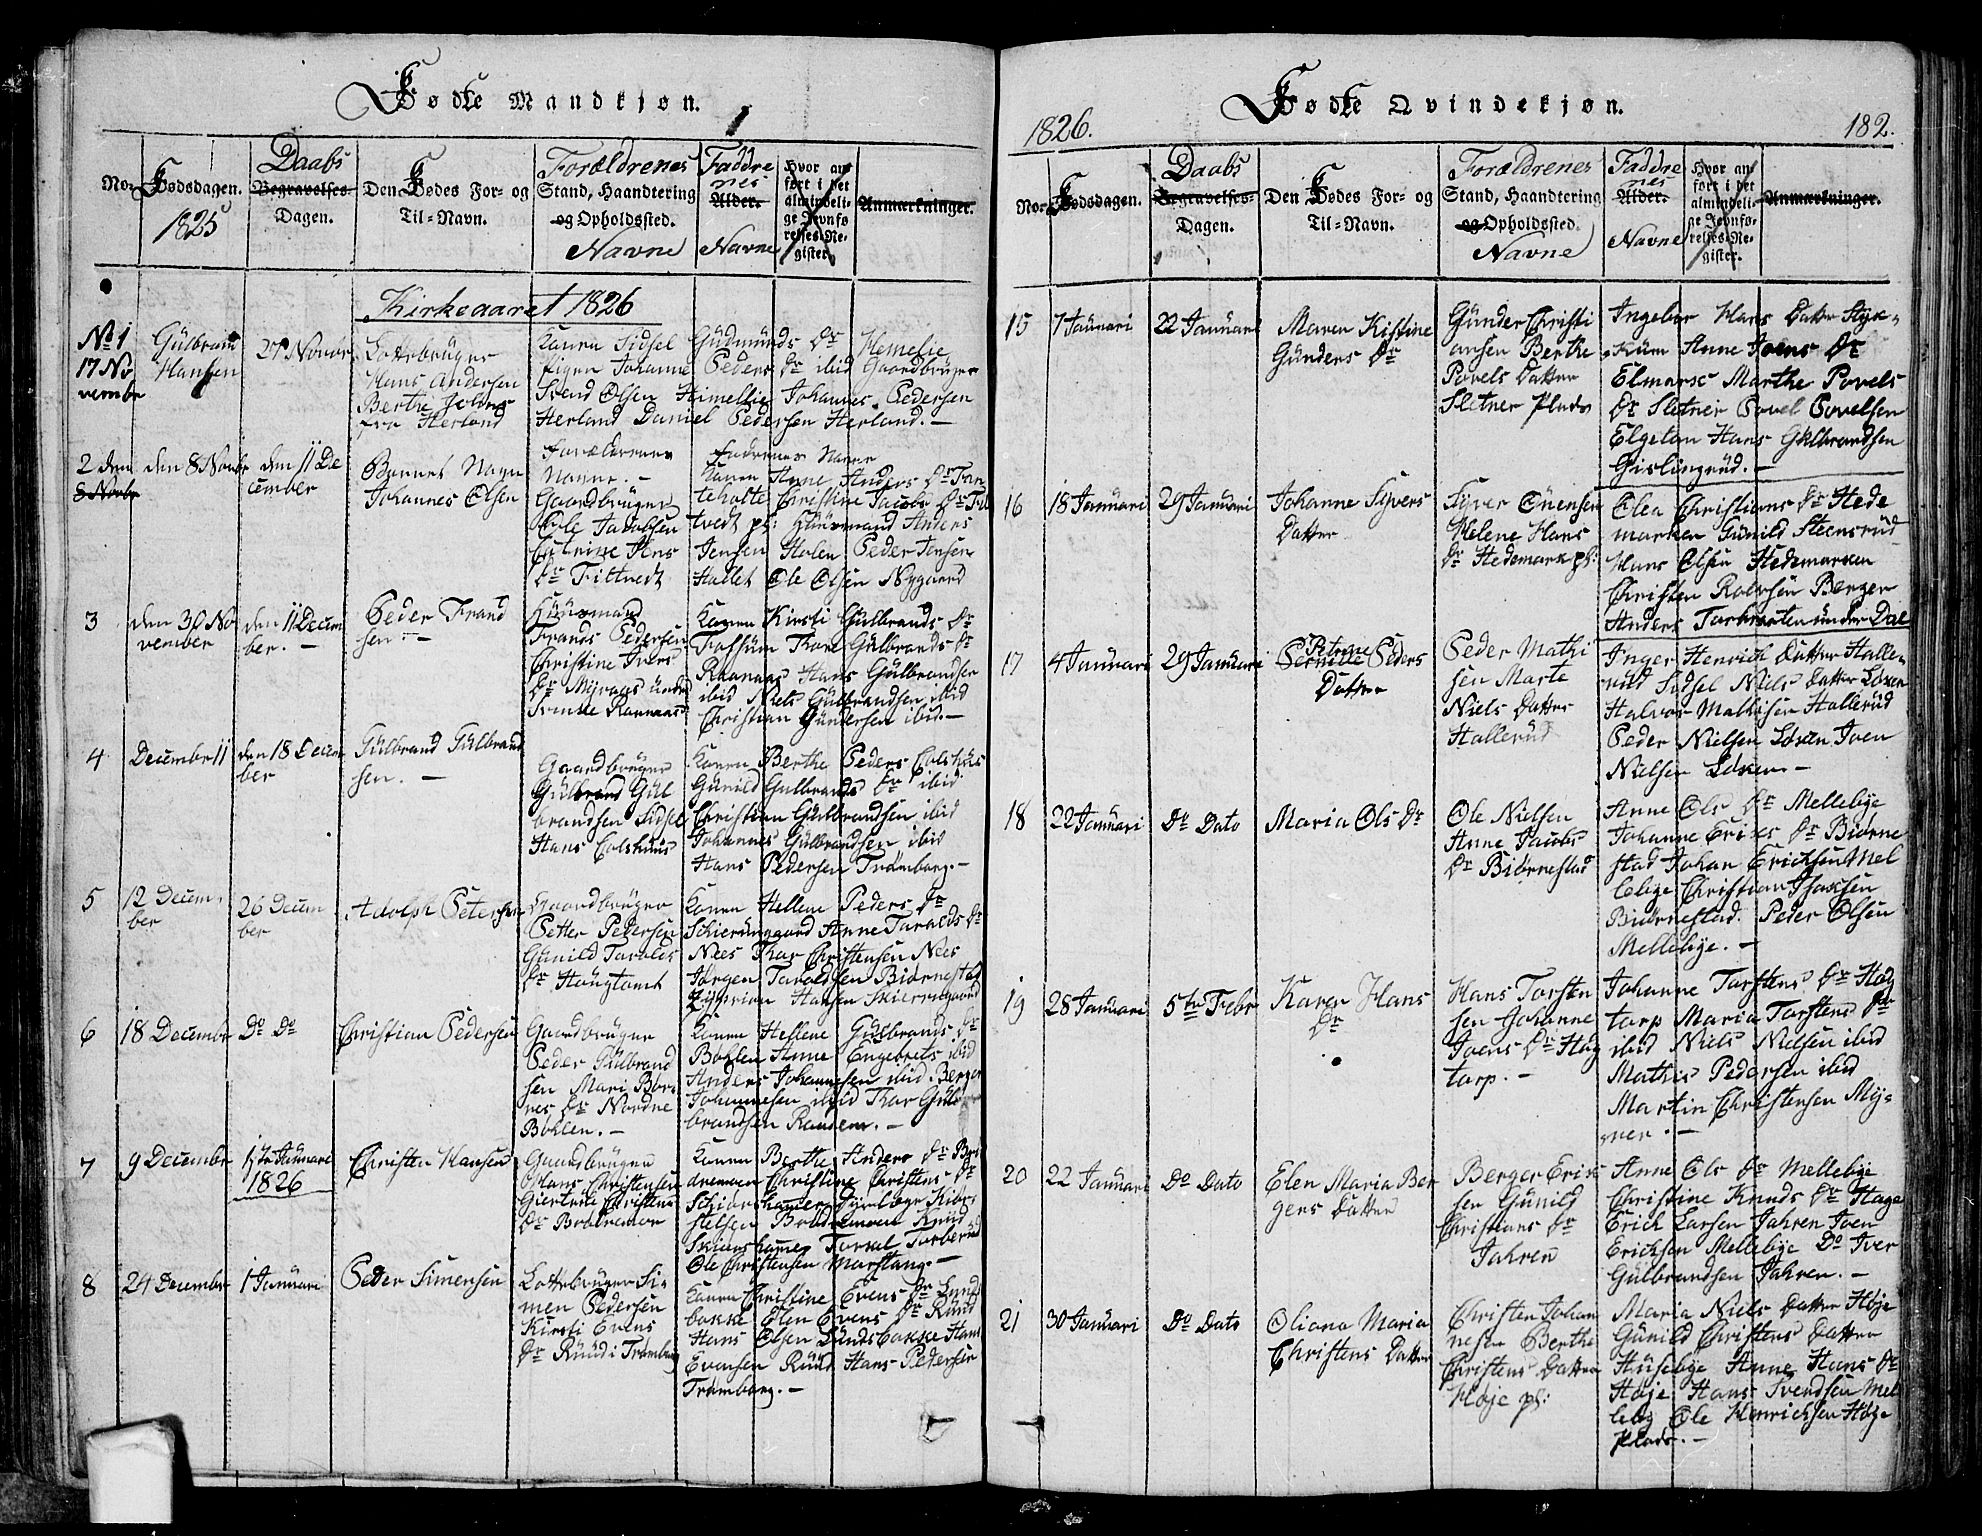 Fødte Mandkjøn.
No.
Fødsdagen.
1825
Daabs
Begravelses-
Dagen.
Den Fødes For- og
Til-Navn.
Forældrenes
Stand, Haandtering
og Opholdssted.
Navne
Faddre
nes
Alder.
Navne
Hvor an-
ført i det
almindeli-
ge Jevnfø-
relses-Re-
gister.
Anmærkninger.
Kirkeaaret 1826
No 1
17 No
vembr
Gülbrand
Hansen
27 Novbr
Lottebrüger
Hans Andersen
Berthe
fra Herland
Konen Sidsel Gudmunds Dr
Pigen Johanne Peders Dr ibid Gaardbrüger
Svend Olsen Himellie Johannes Pedersen
Herland Daniel Pedersen Herland.-
2 den
8 Novbr
den 8 Novbr
den 11 De
cember
Barnet Navn
Johannes Olsen
Forældrenes
Navne.-
Gaardbrüger
Ole Jacobsen
Dr Tittvedt
Fadrenes Navne
Konen Anne Anders Dr
Christine Jacobs Dr
tvedt pl: Hüüsmand Anders
Jensen Holen Peder Jensen
Hallet Ole Olsen Nygaard
3
den 30 No
vember
den 11 Decem
ber.-
Peder Frand
sen-
Hüüsmand
Frands Pedersen
Christine Ivers
Dr Myraas ünder
Konen Kirsti Gülbrands Dr
Fossüm Kari Gülbrands Dr
Raanaas Hans Gülbrandsen
ibid Niels Gülbrandsen ibid
Christian Gündersen ibid.-
4
December 11
den 18 Decem
ber
Gülbrand Gülbrand
sen.-
Gaardbrüger
Gülbrand Gül
brandsen Sidsel
Hans Colshuus
Konen Berthe Peders Colshüs
Günild Gulbrands Dr ibid
Christian Gülbrandsen ibid
Johannes Gülbrandsen ibid
Hans Pedersen Trømborg.-
5
12 Decem-
ber
26 Decem
ber
Adolph Petersen
Gaardbrüger
Petter Pedersen
Günild Tarolds
Dr Hougtomt
Konen Hellene Peders Dr
Schierüngaard Anne Taralds Dr
Nees Thor Christensen Nees
Jørgen Taraldsen Biørnestad
Zyprian Hansen Skierngaard
6
18 December
Do Do
Christian Pedersen
Gaardbrüger
Peder Gülbrand
sen Mari Bør-
nes Dr Nordne
Bøhlen.-
Konen Hellene Gülbrands Dr
Bøhlen Anne Engebrets ibid
Anders Johannesen ibid Berger
Johannesen ibid Thor Gülb
brandsen Randem.-
7
9 December
1ste Januari
1826
Christen Hansen
Gaardbrüger
Hans Christensen
Giertrüe Christens
Dr Bøhlremoe
Konen Berthe Anders Dr
Christine Christens Dr
Ole Christensen Morstang.-
8
24 December
1 Januari
Peder Simensen
Lottebrüger Si-
men Pedersen
Kirsti Evens
Dr Rüüd i Trømborg
Konen Christine Evens Dr Lunds
bakke Elen Evens Dr Rüüd
Hans Olsen Lündsbakke Hans
Evensen Rüüd Hans Pedersen
Trømborg.-
Fødte Qvindekjøn.
1826.
182.
No.
Fødsdagen.
Daabs
Begravelses-
Dagen.
Den Fødes For- og
Til-Navn.
Forældrenes
Stand, Haandtering
og Opholdssted.
Navne
Faddre
nes
Alder.
Navne
Hvor an-
ført i det
almindeli-
ge Jevnfø-
relses-Re-
gister.
Anmærkninger.
15
7 Januari
22 Januari
Maren Kistine
Günders Dr
Günder Christi
ansen Berthe
Povels Datter
Sletner Plads
Ingebor Hans Datter
Anne Joens Dr
Marthe Povels
Dr Sletner Povel Povelsen
Elgetan Hans Gulbrandsen
Gislingrüd.-
16
18 Januari
29 Januari
Johanne Syvers
Datter
Syver
Helene Hans
Dr Hedemark pl:
Olea Christians Dr Hede
marken Gunild Steensrüd
Hans Olsen Hedemarken
Christen Berger
Anders ünder Dal
17
4 Januari
29 Januari
Petrine
Pernille Peders
Datter
Peder Mathi
sen Marte
Niels Datter
Hallerüd
Inger Henrich Datter Halle-
rüd Sidsel Niels Datter Løken
Halvor Mathisen Hallerüd
Peder Nielsen Løken Joen
Nielsen Løken.-
18
22 Januari
Do Dato
Maria Ols Dr
Ole Nielsen
Anne Jacobs
Dr Biørnestad
Anne Ols Dr Mellebye
Johanne Erises Dr Biørne
stad Johan Erichsen Mel
lebye Christian Isaksen
Biørnestad. Peder Olsen
Mellebye.-
19
28 Januari
5te Febr
Karen Hans
Dr
Hans Torsten
sen Johanne
Joens Dr Hag
tarp.-
Johanne Torstens Dr Hag
tarp Maria Torstens Dr
ibid Niels Nielsen ibid
Mathis Pedersen ibid
Martin Christensen My-
rer.-
20
22 Januari
Do Dato
Elen Maria Ber
gers Datter
Berger Erik
sen Günild
Christians Dr
Jahren
Anne Ols Dr Mellebye
Christine Knuds Dr Hage
Erich Larsen Jahren Joen
Ericksen Mellebye Do Iver
Gülbrandsen Jahren.-
21
30 Januari
Do Dato
Oliana Maria
Christens Datter
Christen Johan
nesen Berthe
Christens Datter
Høje pl:
Maria Niels Datter Høje
Günild Christens Datter
Hüsebye Anne Hans Dr
Høje Hans Svendsen Mel
leby Ole Henrichsen Høje
Plads.-